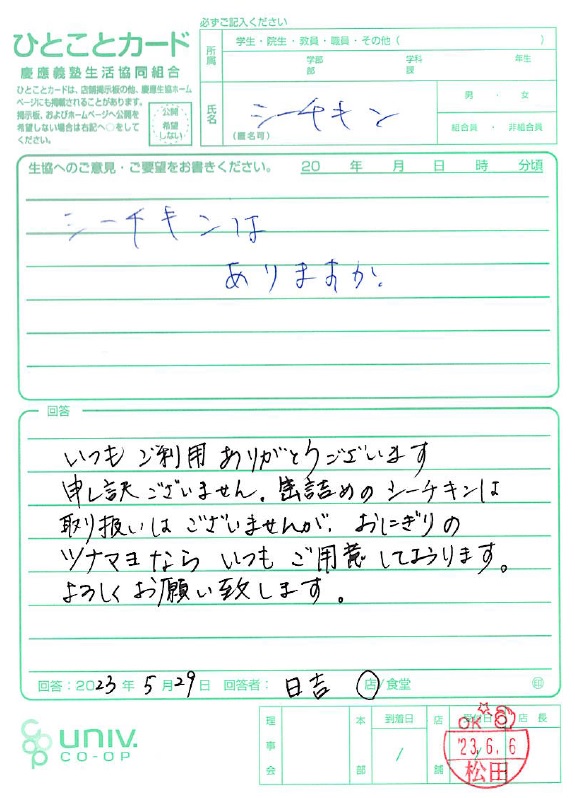 ひとことカード
慶應義塾生活協同組合
ひとことカードは、店舗掲示板の他、慶應生協ホーム
ページにも掲載されることがあります。
掲示板、およびホームページへ公開を
希望しない場合は右記へ○をして
ください。
公開
希望
しない
必ずご記入ください
所属
学生・院生・教員・職員・その他（ ）
学部 学科 年生
部 課
氏名
（匿名可）
シーチキン
男 ・ 女
組合員 ・ 非組合員
生協へのご意見・ご要望をお書きください。 20 年 月 日 時 分頃
シーチキンは
ありますか。
回答
いつもご利用ありがとうございます
申し訳ございません。缶詰めのシーチキンは
取り扱いはございませんが、おにぎりの
ツナマヨならいつもご用意しております。
よろしくお願い致します。
回答：2023年 5月29日 回答者： 日吉 店/食堂 印
UNIV.
CO-OP
理事会
本部
到着日
/
店舗
店長
OK
'23.6.6
松田